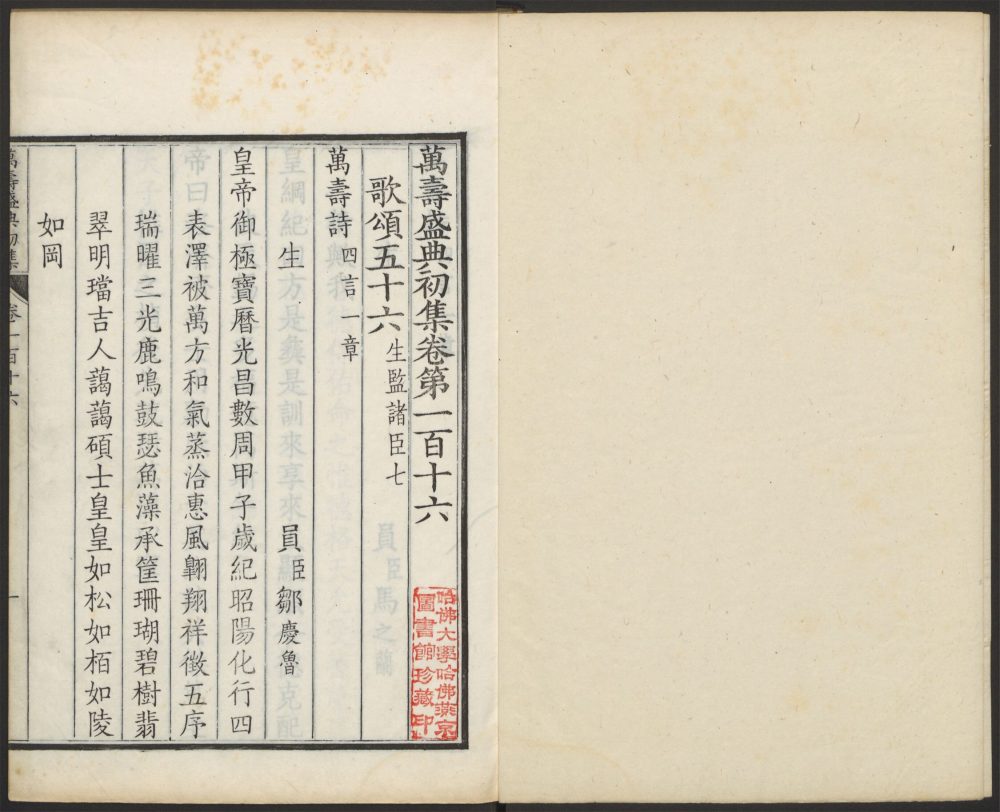 萬壽盛典初集卷第一百十六
歌頌五十六 生監諸臣七
萬壽詩 四言一章
生 員臣鄒慶魯
皇帝御極寶曆光昌數周甲子歲紀昭陽化行四
表澤被萬方和氣蒸洽惠風翺翔祥徵五序
瑞曜三光鹿鳴鼓瑟魚藻承筐珊瑚碧樹翡
翠明璫吉人藹藹碩士皇皇如松如栢如陵
如岡
萬壽盛典初集 卷一百十六 一
哈佛大學哈佛燕京
圖書館珍藏印